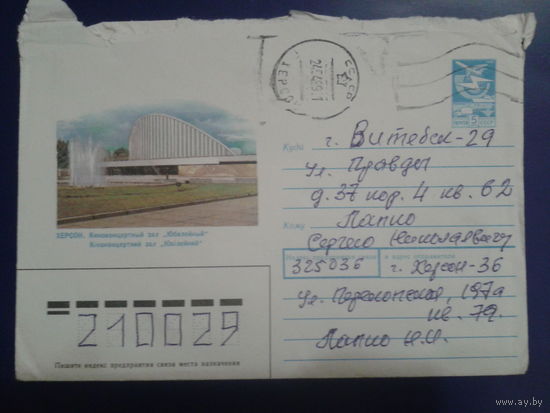 СССР
ХЕРСОН
ПОЧТА 5 СССР
Куда г. Витебск-29
ул. Правды
д. 37 кор. 4 кв. 62
Кому Лапко
Сергею Николаевичу
ХЕРСОН. Киноконцертный зал „Юбилейный"
Кіноконцертний зал „Ювілейний"
и адрес отправителя
325036 г. Херсон-36
ул. Перекопская, 197а
кв. 79.
Лапко Н.И.
210029
Пишите индекс предприятия связи места назначения
www.ay.by